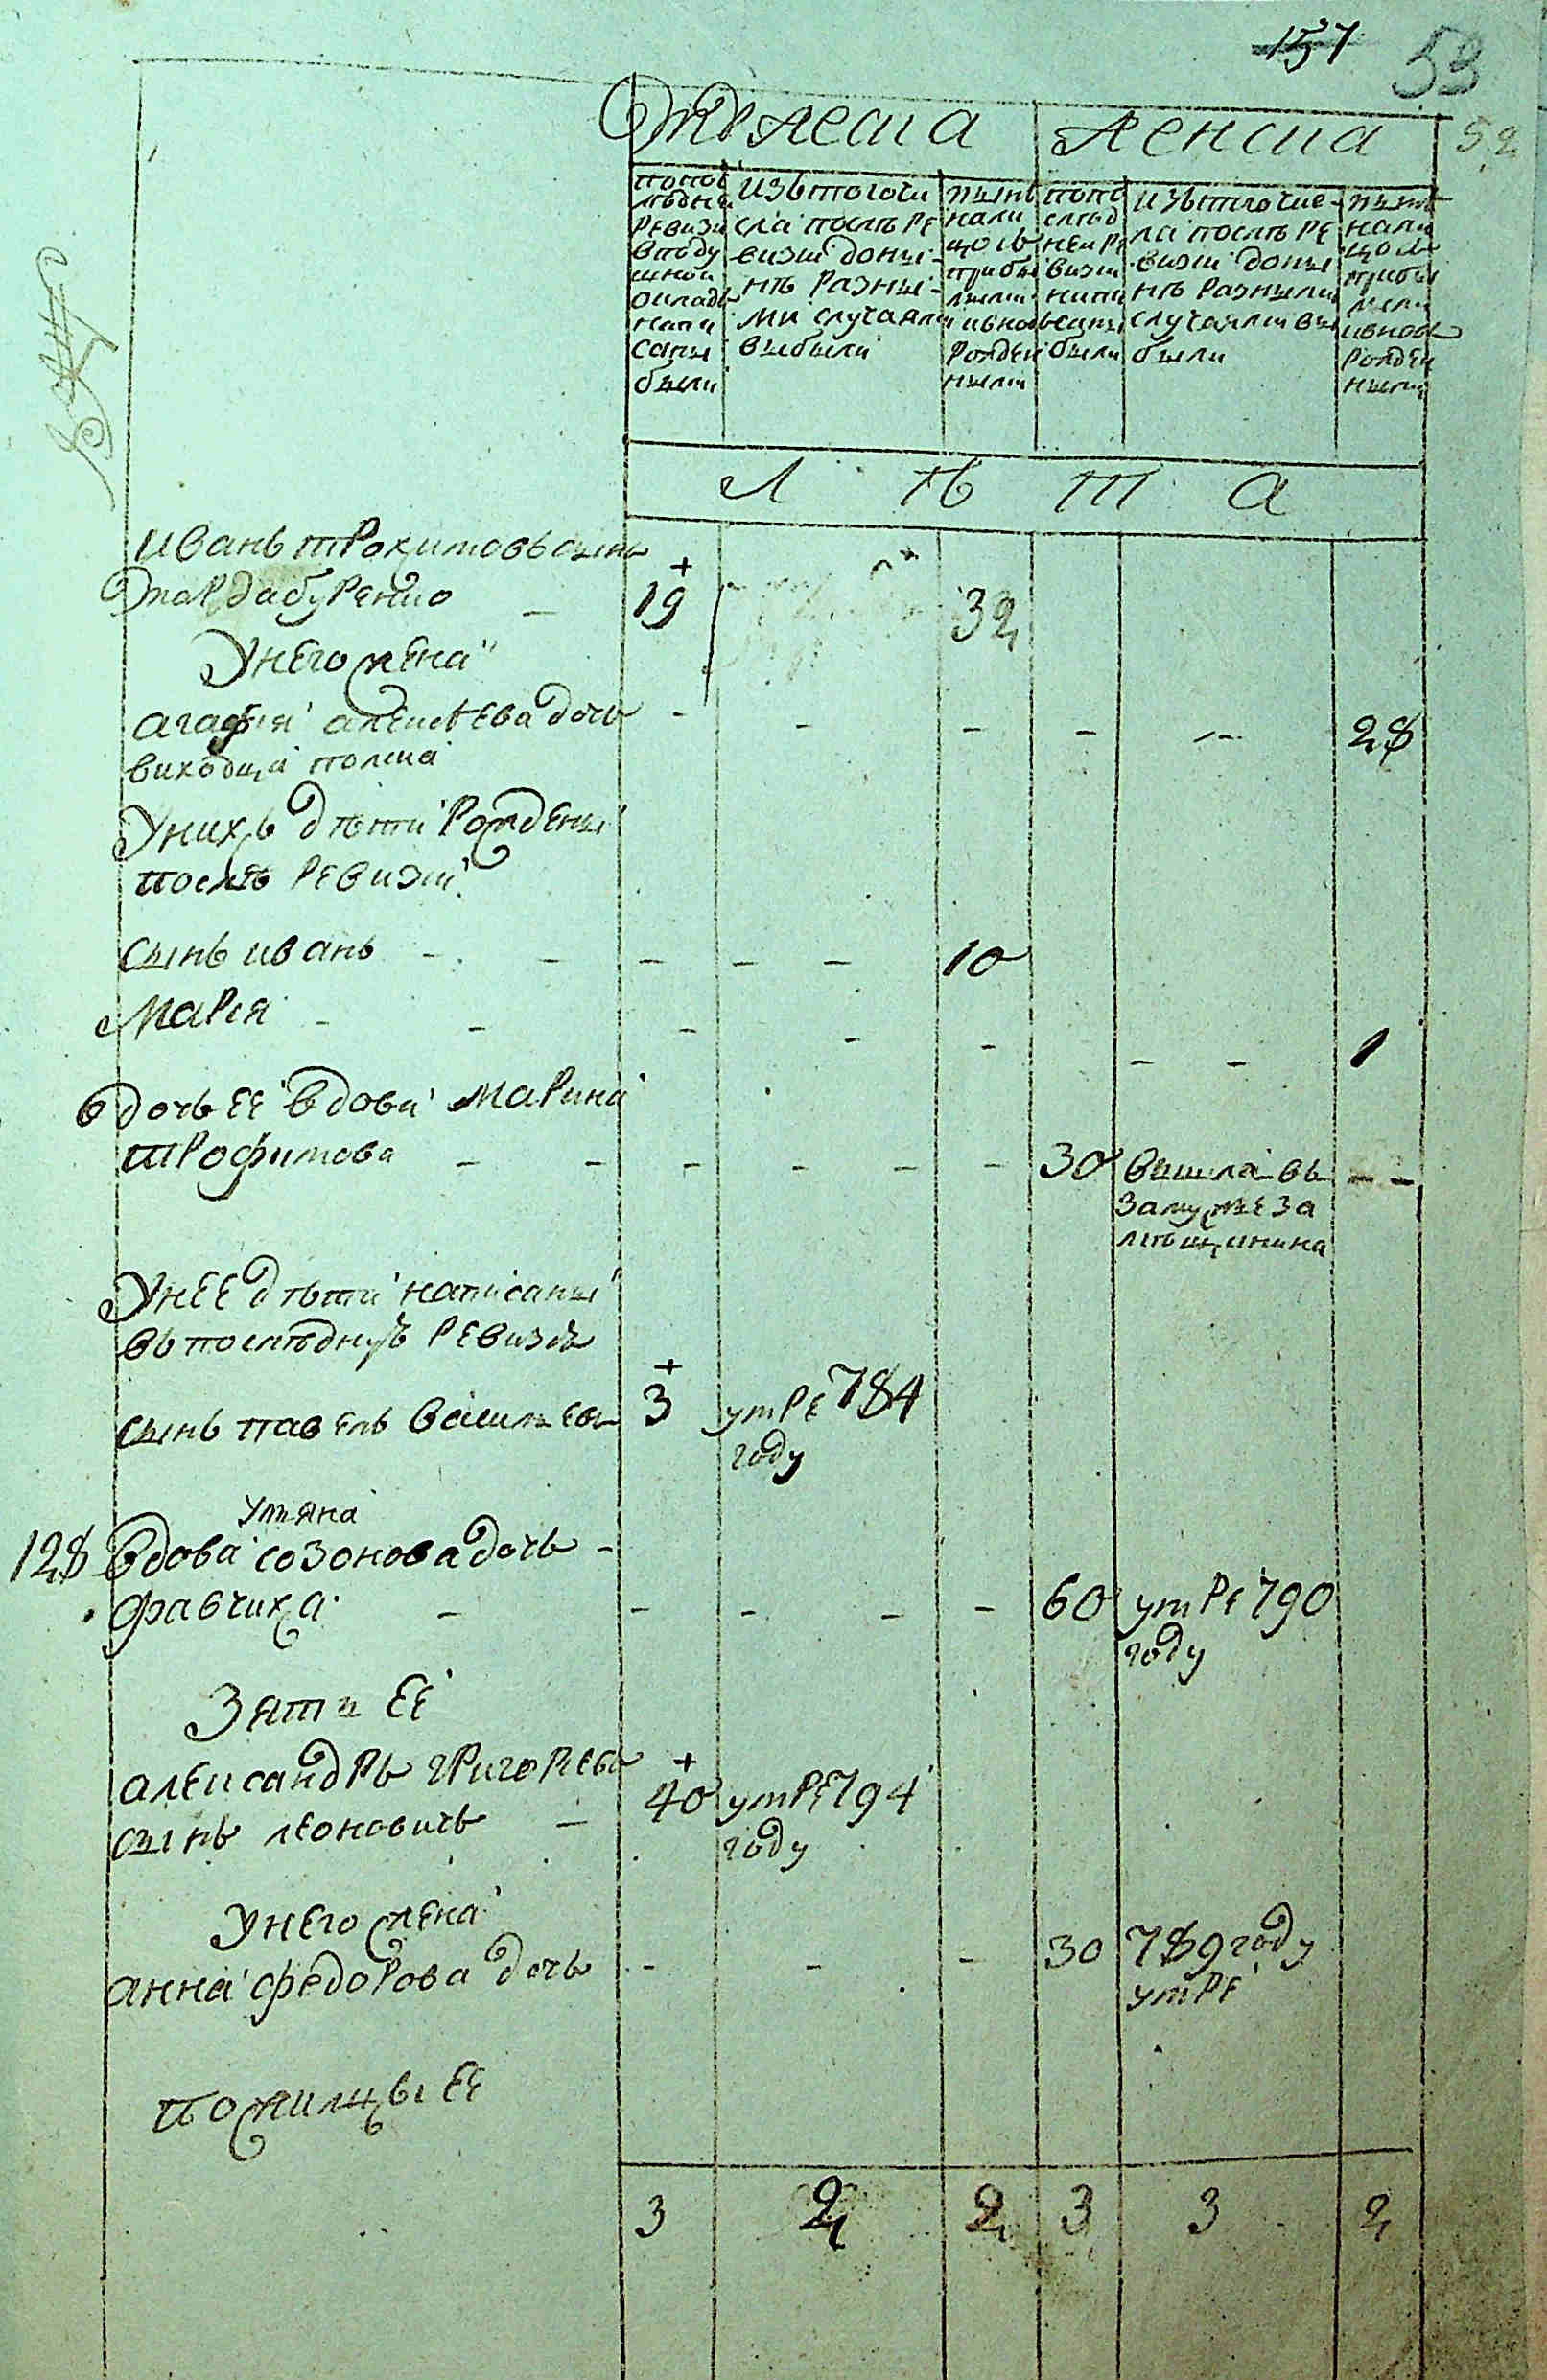 157 53
52
Мужеска Женска
попос
лѣдне
ревизи
в поду
шной
окладъ
напи
саны
были
изътогочи
сла послѣ ре
визии доны
нѣ разны
ми случаями
выбыли
ныне
нали
цо съ
прибы
лыми
ивновь
рожден
ными
попо
слѣд
неи ре
визии
напи
саны
были
изътогочис
ла послѣ ре
визии доны
нѣ разными
случаями вы
были
ныне
нали
цо съ
прибы
лыми
ивновь
рожден
ными
Л ѣ т а
иванъ трохимовъ сынъ
19 32
унего жена
агафия алексѣева дочь 28
виходца полша
унихъ дѣти рождены
послѣ ревизии
сынъ иванъ 10
Мария 1
дочь ее вдова Марина
трофимова 30 вышла въ
замуже за
унее дѣти написаны
въ последную ревизию
сынъ павелъ васильевъ 3 умре 784
году
уляна
128 вдова созонова дочь
фавчиха 60 умре 790
году
Зять ее
александръ григоревъ
сынъ леоновичь 40 умре 794
году
унего жена
анна федорова дочь 30 789 году
умре
пожилцы ее
3 2 2 3 3 2